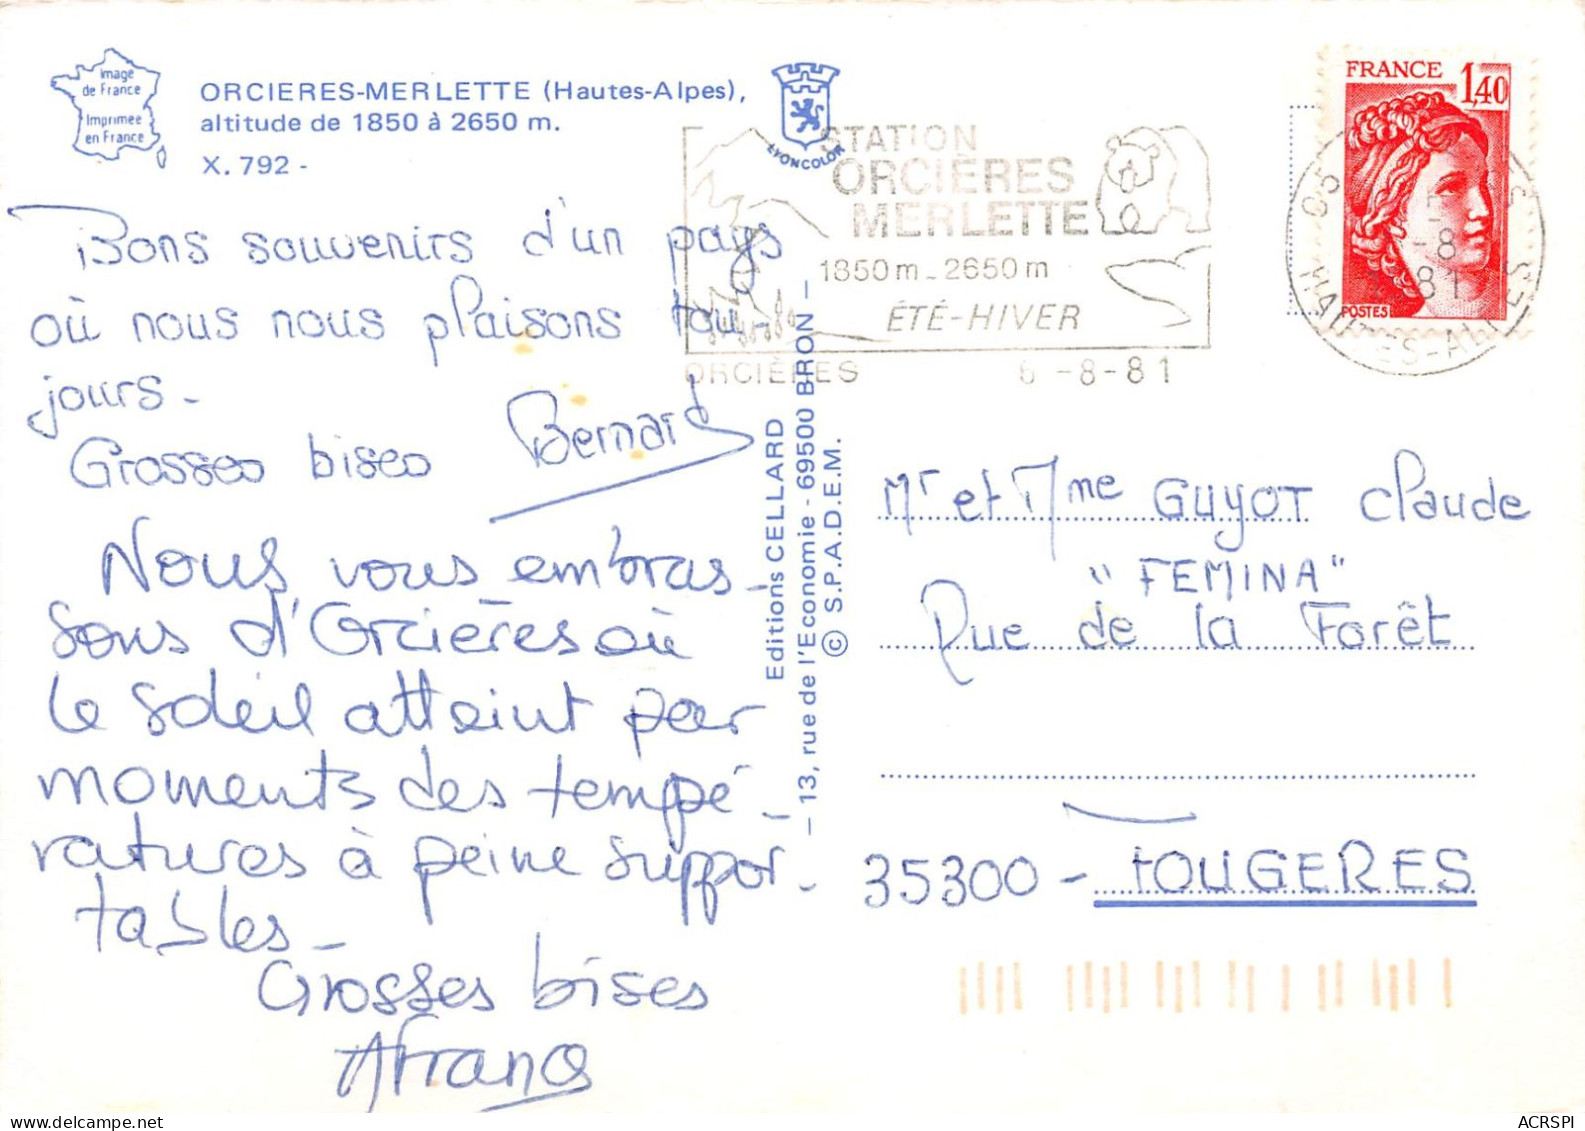 image
de France
Imprimée
en France
ORCIERES-MERLETTE (Hautes-Alpes),
altitude de 1850 à 2650 m.
X. 792 -
LYONCOLOR
STATION
ORCIÈRES
MERLETTE
1850m_2650m
ÉTÉ-HIVER
ORCIÈRES 6-8-81
FRANCE 1,40
POSTES
05
-8
81
HAUTES-ALPES
Bons souvenirs d'un pays
où nous nous plaisons tou
jours_
Grosses bises Bernard
Nous vous embras_
sons d'Orcières où
le soleil atteint par
moments des tempé_
ratures à peine suppor_
tables_
Grosses bises
Editions CELLARD
— 13, rue de l'Economie - 69500 BRON —
© S.P.A.D.E.M.
Mr et Mme GUYOT Claude
"FEMINA"
Rue de la Forêt
35300 - FOUGERES
delcampe.net
ACRSPI